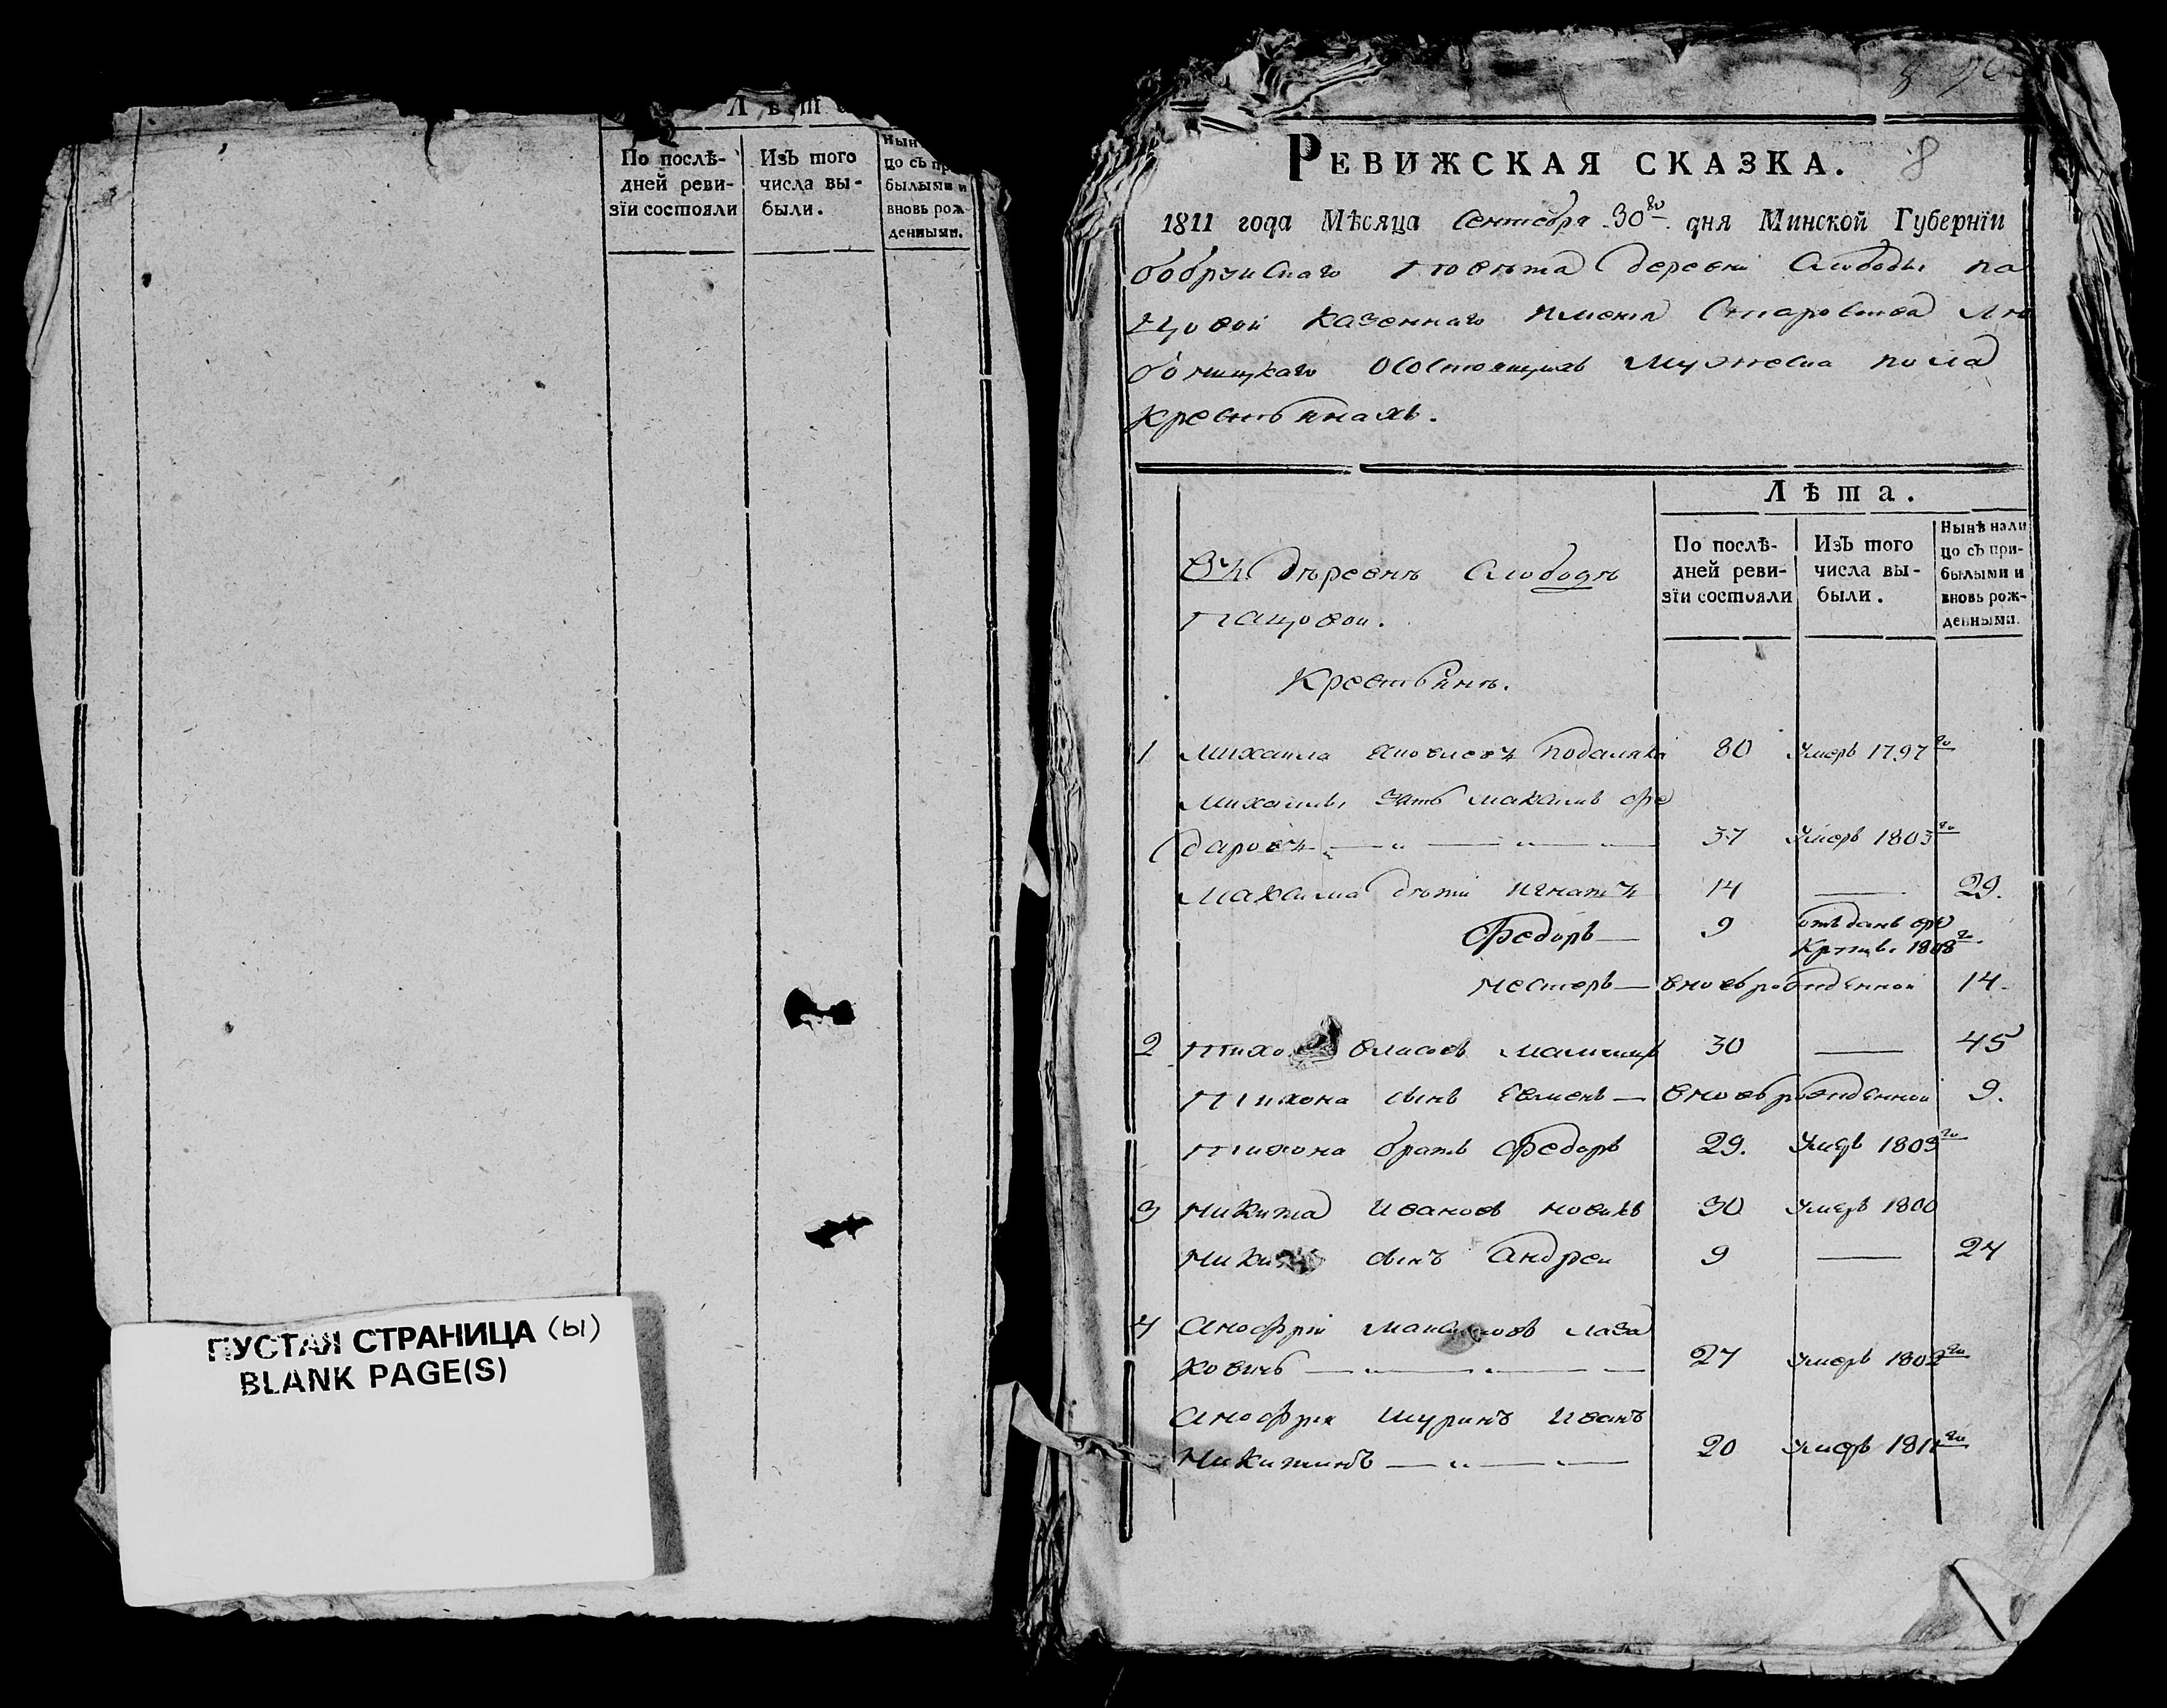 Лѣт
По послѣ-
дней реви-
зїи состояли
Изъ того
числа вы-
были.
Нын
цо съ пр
былыми и
вновь рож-
денными.
ПУСТАЯ СТРАНИЦА (ы)
BLANK PAGE(S)
8
РЕВИЖСКАЯ СКАЗКА. 8
1811 года Мѣсяца Сентебря 30го дня Минской Губернїи
бобруйскаго повѣта деревни Слободы па
цовой казеннаго имения Староства Лю
боницкаго Осостоящихъ мужеска пола
крестьянахъ.
Лѣта.
По послѣ-
дней реви-
зїи состояли
Изъ того
числа вы-
были.
Нынѣ нали
цо съ при-
былыми и
вновь рож-
денными.
Въ дѣревнѣ Слободѣ
пацовой.
Крестьянъ.
1 Михаила Яковлевъ подаляка 80 Умеръ 1797го
Михаилы зять Макаимъ фе
даровъ 37 Умеръ 1803го
Макаима дѣти игнатъ 14 — 29.
Федоръ — 9 отъданъ вре
Круты. 1808го
нестеръ — вновьрожденной 14.
2 Тихо власовъ 30 — 45
Тихона сынъ Евменъ — вновьрожденной 9.
Тихона братъ Федоръ 29. Умеръ 1809го
3 Микита Ивановъ новикъ 30 Умеръ 1800
Мики сынъ Андреи 9 — 24
4 Анофрїи лаза
ковичь 27 Умеръ 1802го
Анофрия шуринъ Иванъ
Микитинъ 20 Умеръ 1811го